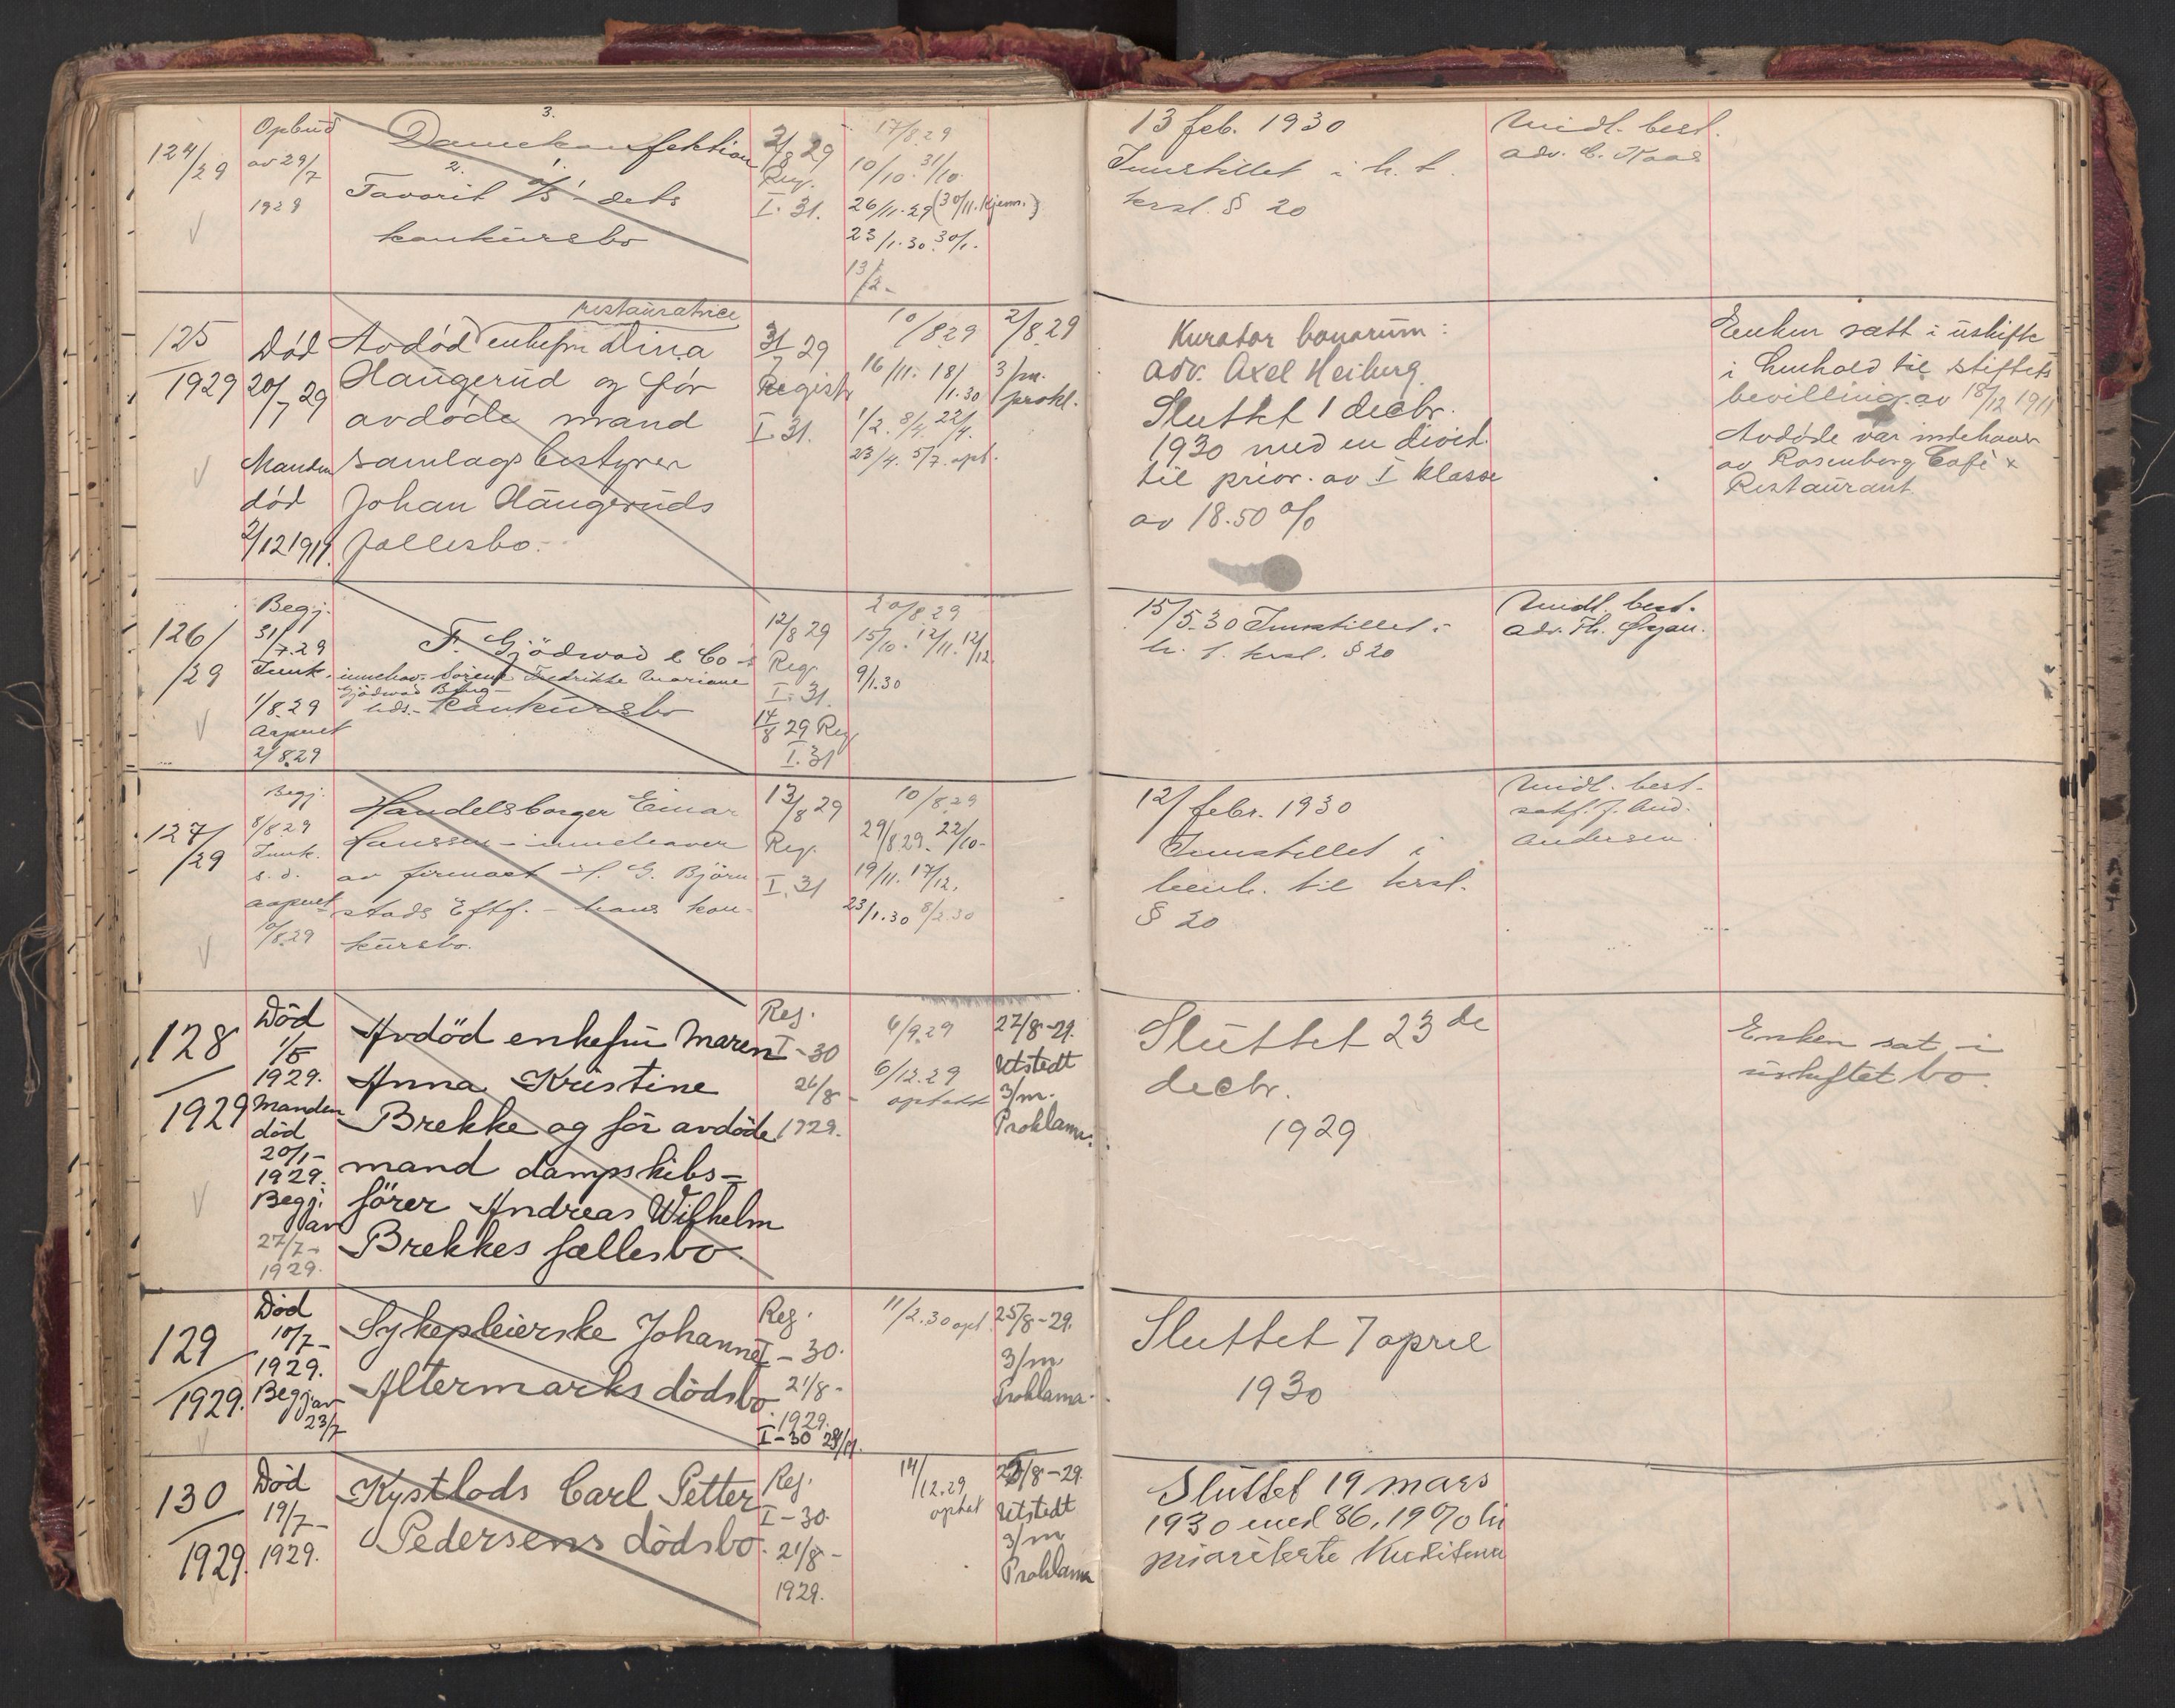 124/29
Opbud
av 29/7
1929
3.
Damekonfektion
2. 1.
Favorit A/S - dets
konkursbo
2/8 29
Reg.
I. 31.
17/8.29
10/10. 31/10.
26/11.29 (30/11. Kjenn.)
23/1.30. 30/1.
13/2 -
13 feb. 1930
Innstillet i h. t.
krsl. § 20
Midl. best.
adv. C. Kaas
125
1929
Død
20/7 29
Manden
død
2/12 1911.
restauratrice
Avdød enkefru Dina
Haugerud og før
avdøde mand
samlagsbestyrer
Johan Haugeruds
fællesbo.
31/7 29
Registr
I 31.
10/8.29
16/11. 18/1.30
1/2. 8/4. 22/4.
23/4. 5/7. opt.
2/8.29
3/m.
prokl.
Kurator bonorum:
adv. Axel Heiberg
Sluttet 1 decbr.
1930 med en divid.
til prior. av I klasse
av 18.50 %
Enken satt i uskifte
i henhold til stiftets
bevilling av 18/12 1911
Avdøde var indehaver
av Rosenborg Café &
Restaurant.
126/29
Begj.
31/7.29
Innk.
1/8.29
aapnet
2/8.29
F. Gjödwad & Co -
innehav. Fredrikke Mariane
Gjödwad Berg -
konkursbo
12/8 29
Reg.
I. 31.
14/8 29 Reg
I. 31
20/8.29
15/10. 12/11. 12/12.
9/1.30
15/5.30 Innstillet i
h. t. krsl. § 20
Midl. best.
adv. Th. Örjan.
127/29
Begj.
8/8.29
Innk.
s. d.
aapnet
10/8.29
Handelsborger Einar
Hanssen - innehaver
av firmaet H. G. Björn
stads Eftf. - hans kon-
kursbo.
13/8 29
Reg.
I. 31
10/8.29
29/8.29. 22/10-
19/11. 17/12.
23/1.30 8/2.30
12/ febr. 1930
Innstillet i
henh. til krsl.
§ 20
Midl. best.
sakf. J. And.
Andersen
128
1929
Død
1/5
1929.
Manden
død
20/1-
1929.
Begj.
av
27/7-
1929.
Avdöd enkefru Maren
Anna Kristine
Brekke og för avdöde
mand dampskibs-
förer Andreas Wilhelm
Brekkes fællesbo
Reg.
I-30
26/8-
1929.
6/9.29
6/12.29
optatt
27/8-29.
Utstedt
3/m.
Proklama.
Sluttet 23de
decbr.
1929
Enken sat i
uskiftet bo.
129
1929.
Død
10/7-
1929.
Begj av
23/7
Sykepleierske Johanne
Altermarks dödsbo
Reg.
I-30.
21/8-
1929.
I-30 29/11.
11/2.30 opt.
25/8-29.
3/m
Proklama.
Sluttet 7 april
1930
130
1929.
Død
19/7-
1929.
Kystlods Carl Petter
Pedersens dödsbo.
Reg.
I-30.
21/8-
1929.
14/12.29
optat
/8-29.
Utstedt
3/m
Proklama
Sluttet 19 mars
1930 med 86,19 % til
prioriterte Kreditorer